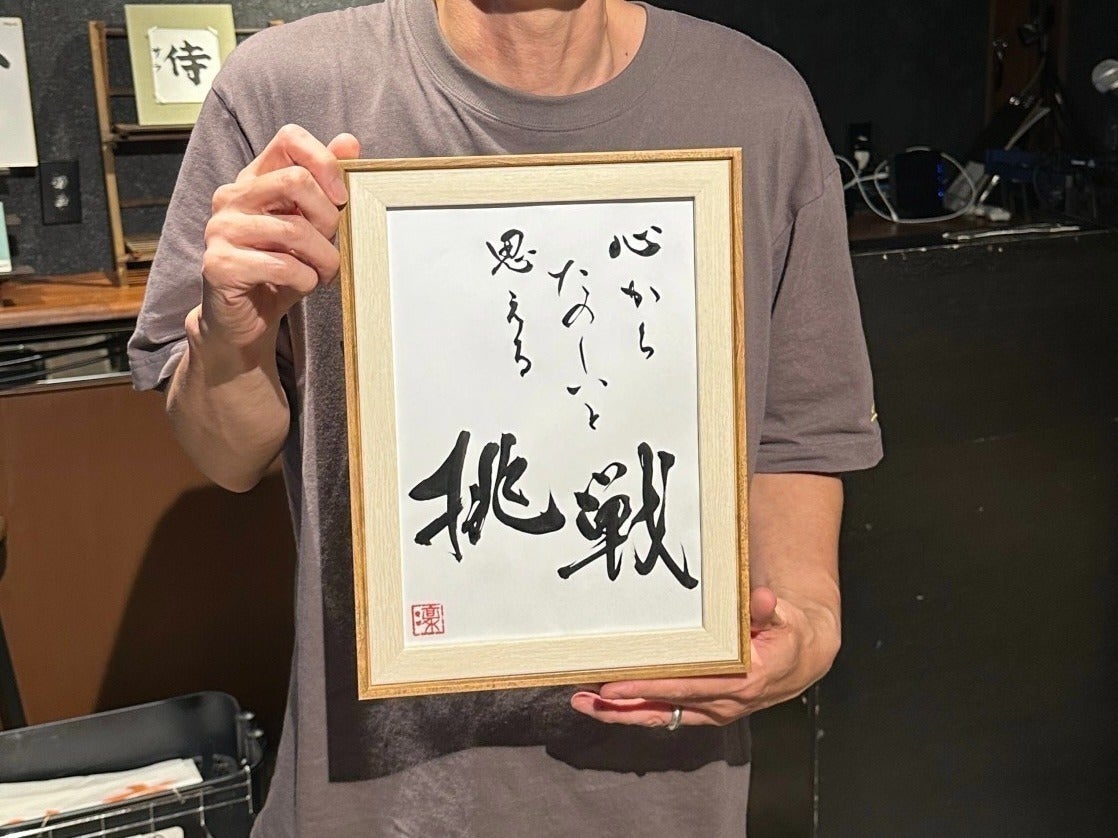 心から
たのしいと
思える
挑戦
侍